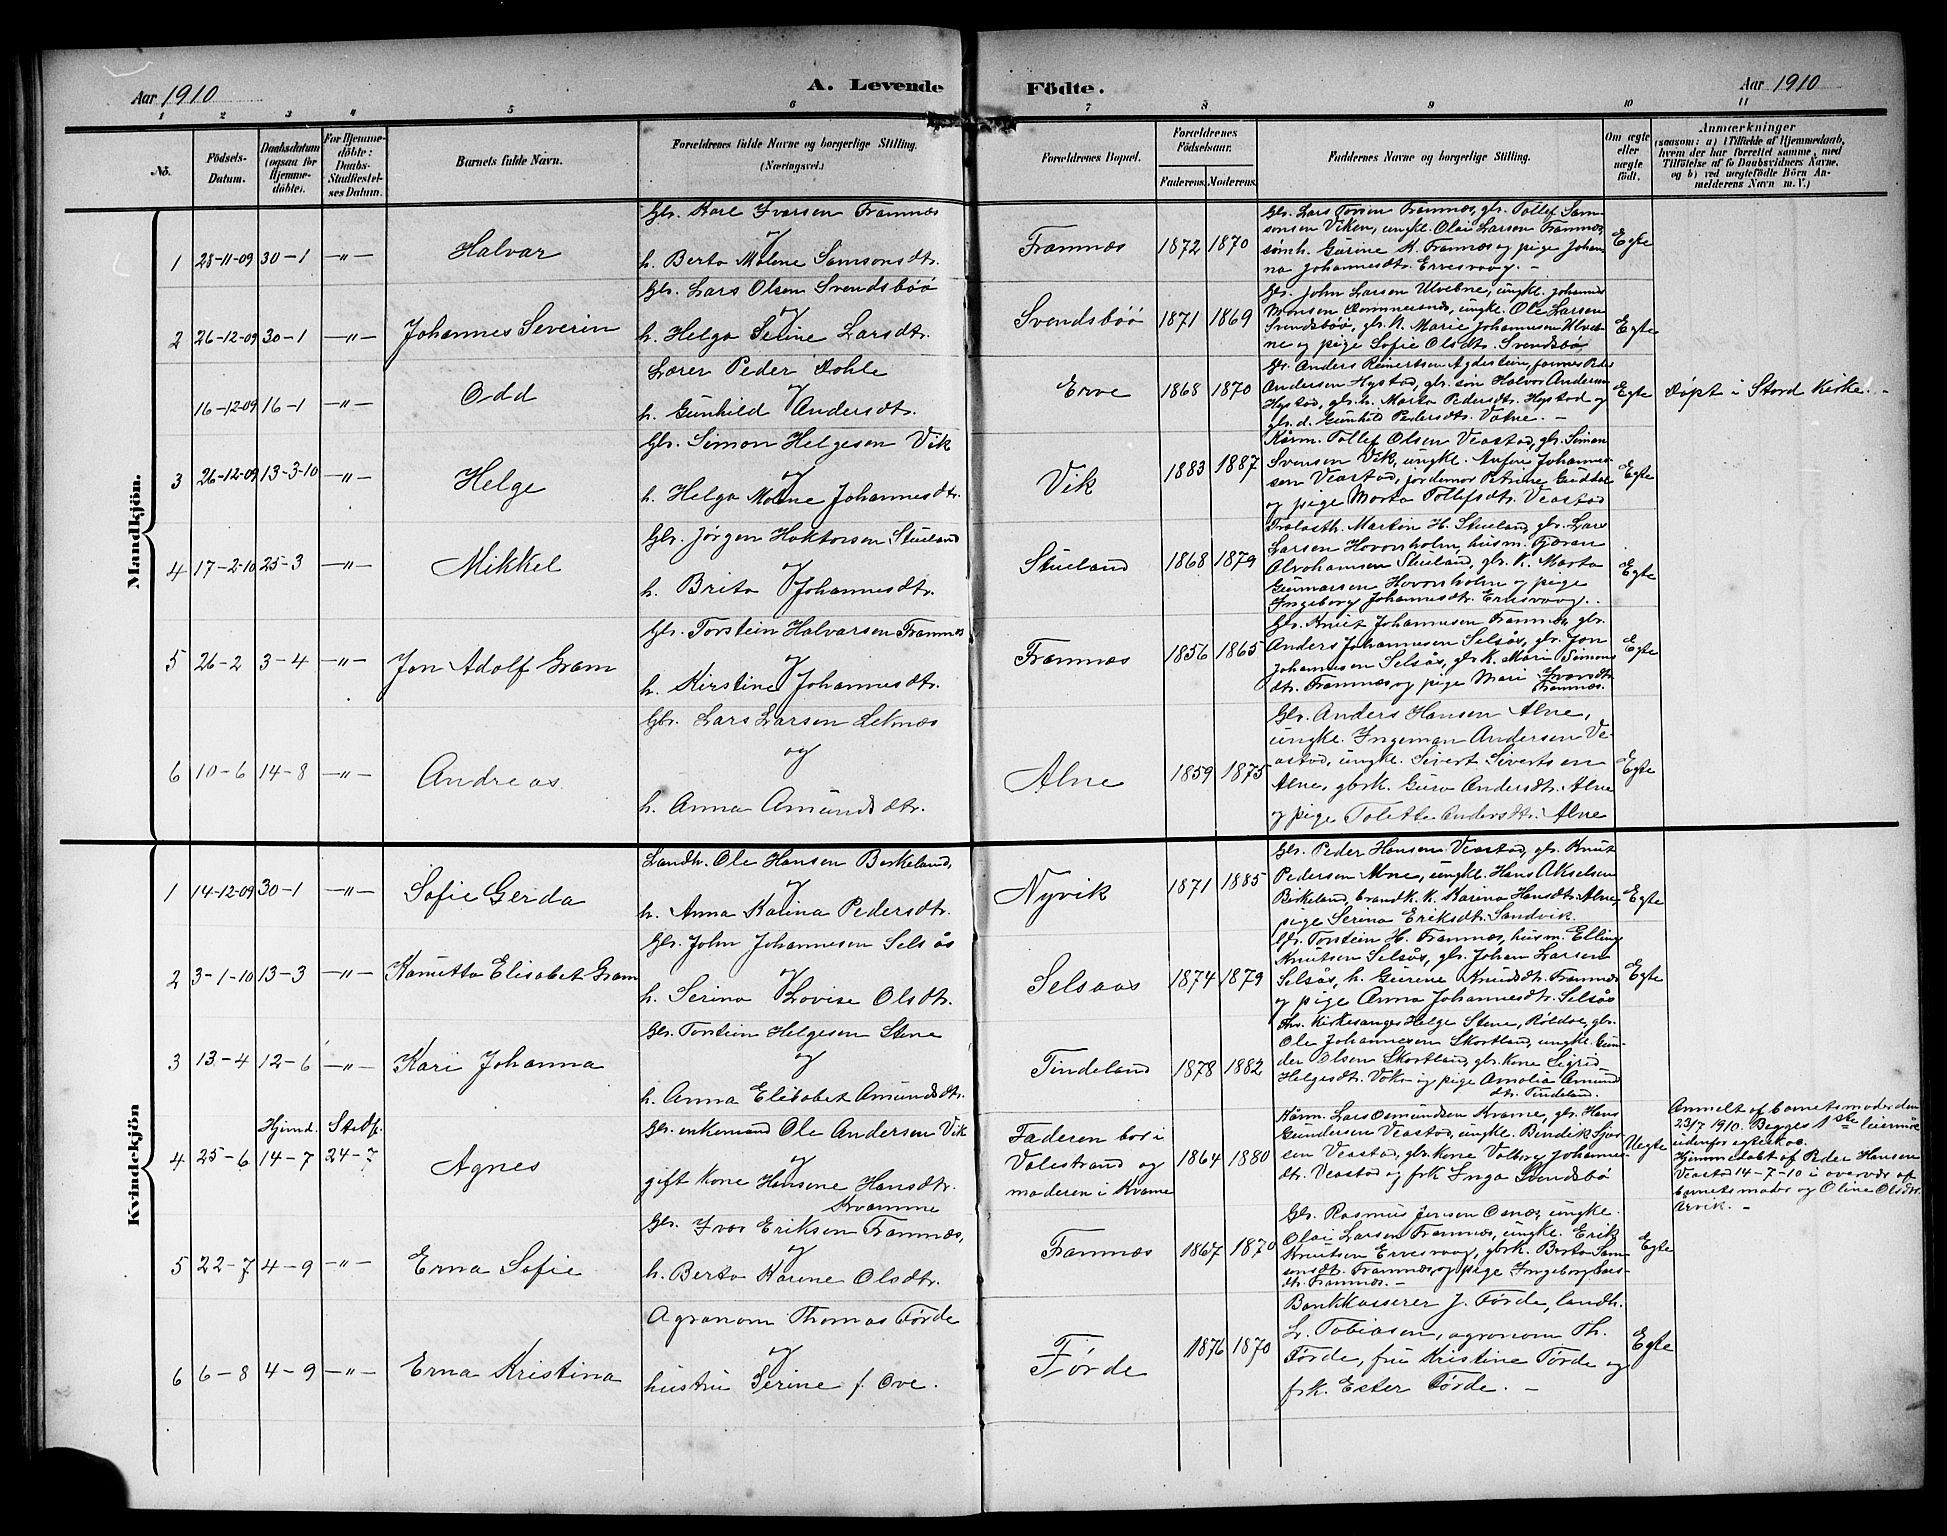 Aar 1910
A. Levende
Födte.
Aar 1910
1 2 3 4 5 6 7 8 9 10 11
No.
Födsels-Datum.
Daabsdatum (ogsaa for Hjemmedöbte).
For Hjemmedöbte: Daabs-Stadfæstelses Datum.
Barnets fulde Navn.
Forældrenes fulde Navne og borgerlige Stilling.
(Næringsvei.)
Forældrenes Bopæl.
Forældrenes Födselsaar.
Faderens. Moderens.
Faddernes Navne og borgerlige Stilling.
Om ægte eller uægte födt.
Anmærkninger
(saasom: a) i Tilfælde af Hjemmedaab,
hvem der har forrettet samme, med
Tilföielse af to Daabsvidners Navne,
og b) ved uægtefödte Börn Anmelderens Navn m. V.)
Mandkjön.
1 28-11-09 30-1 -"- Halvar
Gbr. Karl Ivarsen Framnæs
og
h. Berta Malene Samsonsdtr.
Framnæs 1872 1870
Gbr. Lars Torsen Framnæs, gbr. Tollef Sam-
sonsen Viken, ungk. Olai Larsen Framnæs,
Gurine K. Framnæs og pige Johan-
na Johannesdtr. Ervesvaag. -
Egte
2 26-12-09 30-1 -"- Johannes Severin
Gbr. Lars Olsen Svendsbøø
og
h. Helga Serine Larsdtr.
Svendsbøø 1871 1869
Gbr. John Larsen Ulvebne, ungk. Johannes
Monsen ungk. Ole Larsen
Svendsbøø, gbr. k. Marie Johannesen Ulveb-
ne og pige Sofie Olsdtr. Svendsbø
Egte
16-12-09 16-1 -"- Odd
Lærer Peder Dahle
og
h. Gunhild Andersdtr.
Erve 1868 1870
Gbr. Anders Reinertsen Agdestein, Peder
Andersen Hystad, gbr. søn Halvor Andersen
Hystad, gbr. k. Marta Pedersdtr. Hystad og
gbr. d. Gunhild Pedersdtr. Valne. -
Egte
Døpt i Stord Kirke. -
3 26-12-09 13-3-10 -"- Helge
Gbr. Simon Helgesen Vik
og
h. Helga Malene Johannesdtr.
Vik 1883 1887
Kårm. Tollef Olsen Veastad, gbr. Simon
Svensen Vik, ungk. Anfin Johannes-
sen Veastad, jordemor Petrine
og pige Marta Tollefsdtr. Veastad
Egte
4 17-2-10 25-3 -"- Mikkel
Gbr. Jørgen Haktorsen Stueland
og
h. Brita Johannesdtr.
Stueland 1868 1879
Martin H. Stueland, gbr. Lars
Larsen Hovonsholm, husm. Fjæran
Abrahamsen Stueland, gbr. k. Marta
Gunnarsen Hovonsholm og pige
Ingeborg Johannesdtr. Ervesvaag.
Egte
5 26-2 3-4 -"- Jon Adolf Gram
Gbr. Torstein Halvarsen Framnæs
og
h. Kirstine Johannesdtr.
Framnæs 1856 1865
Gbr. Knut Johannesen Framnæs, gbr.
Anders Johannesen Selsås, gbr. Jon
Johannesen Selsås, gbr. k. Mari Simons-
dtr. Framnæs og pige Mari Ivarsdtr.
Framnæs.
Egte
6 10-6 14-8 -"- Andreas
Gbr. Lars Larsen Leknæs
og
h. Anna Amundsdtr.
Alne 1859 1875
Gbr. Anders Hansen Alne,
ungk. Ingeman Andersen Ve-
astad, ungk. Sivert Sivertsen
Alne, gbrk. Guro Andersdtr. Alne
og pige Tolette Andersdtr. Alne
Egte
Kvindekjön
1 14-12-09 30-1 -"- Sofie Gerda
Landh. Ole Hansen Berkeland,
og
h. Anna Karina Pedersdtr.
Nyvik 1871 1885
Gbr. Peder Hansen Veastad, gbr. Knut
Pedersen Alne, ungk. Hans Akselsen
Birkeland, k. Karina Hansdtr. Alne,
pige Serina Eriksdtr. Sandvik
Egte
2 3-1-10 13-3 -"- Kanutta Elisabet Gram
Gbr. John Johannesen Selsås
og
h. Serina Lovise Olsdtr.
Selsaas 1874 1879
Gbr. Torstein H. Framnæs, husm. Elling
Knutsen Selsås, gbr. Johan Larsen
Selsås, h. Gurine Knudsdtr. Framnæs
og pige Anna Johannesdtr. Selsås
Egte
3 13-4 12-6 -"- Kari Johanna
Gbr. Torstein Helgesen Stene
og
h. Anna Elisabet Amundsdtr.
Tindeland 1878 1882
Kirkesanger Helge Stene, Røldal, gbr.
Ole Johannesen Skortland, ungk. Gun-
der Olsen Skortland, gbr. kone Sigrid
Helgesdtr. Våks og pige Amalia Amunds-
dtr. Tindeland.
4 25-6 Hjemd. 14-7 Stadf. 24-7 Agnes
Gbr. enkemand Ole Andersen Vik
og
gift kone Hansene Hansdtr.
Kvamme
Faderen bor i
Valestrand og
moderen i Kvame
1864 1880
Kårm. Lars Osmundsen Kvame, gbr. Hans
Gundersen Veastad, ungk. Bendik
sen Veastad, gbr. kone Valborg Johannes-
dtr. Veastad og frk Inga Svendsbø
Uegte
Anmelt af barnets moder den
23/7 1910. Begges 1ste leiermål
udenfor egteskab.
Hjemmedøbt af Peder Hansen
Veastad 14-7-10 i overvær af
barnets moder og Oline Olsdtr.
Urvik. -
5 22-7 4-9 -"- Erna Sofie
Gbr. Ivar Eriksen Framnæs,
og
h. Berta Karine Olsdtr.
Framnæs 1867 1870
Gbr. Rasmus Jensen Osnæs, ungk.
Olai Larsen Framnæs, ungk. Erik
Knutsen Ervesvaag, gbrk. Berta Sam-
sonsdt. Framnæs og pige Ingeborg Lars-
dtr. Framnæs. -
Egte
6 6-8 4-9 -"- Erna Kristina
Agronom Thomas Førde
og
hustru Serine f. Ove.
Førde 1876 1870
Bankkasserer J. Førde, landh.
L. Tobiasen, agronom Th.
Førde, fru Kristine Førde og
frk. Ester Førde. -
Egte